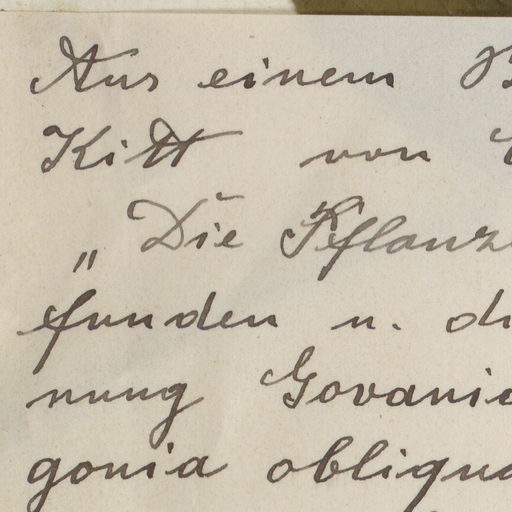 Aus einem
Kitt von
„Die Pflanz
funden u.
nung Govani
gonia obliqu